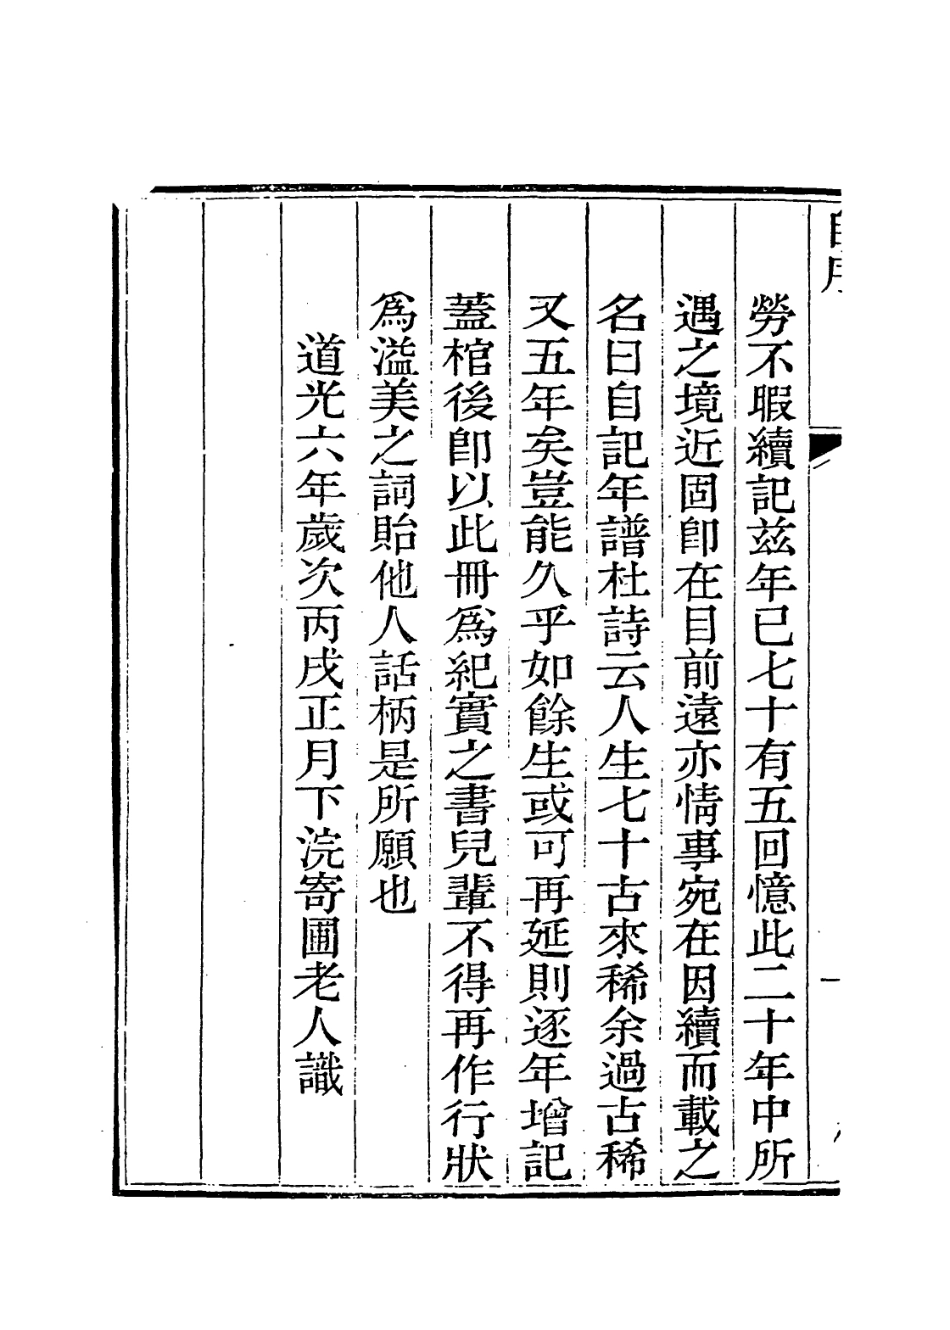 自序
勞不暇續記茲年已七十有五回憶此二十年中所
遇之境近固卽在目前遠亦情事宛在因續而載之
名曰自記年譜杜詩云人生七十古來稀余過古稀
又五年矣豈能久乎如餘生或可再延則逐年增記
蓋棺後卽以此冊爲紀實之書兒輩不得再作行狀
爲溢美之詞貽他人話柄是所願也
道光六年歲次丙戌正月下浣寄圃老人識